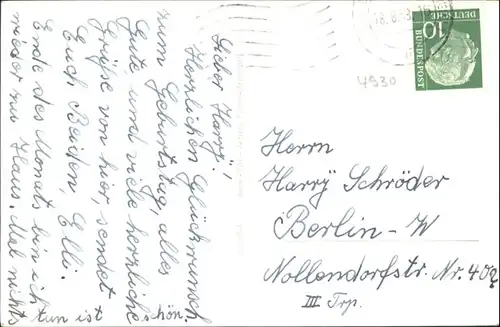 Lieber Harry!,
Herzlichen Glückwunsch
zum Geburtstag, alles
Gute und viele herzliche
Grüße von hier, sendet
Euch Beiden, Elli.
Ende des Monats bin ich
wieder zu Haus. Mal nichts
tun ist schön.
18.8.5
10
DEUTSCHE
BUNDESPOST
4930
Herrn
Harry Schröder
Berlin-W
Nollendorfstr. Nr. 40
III Trp.